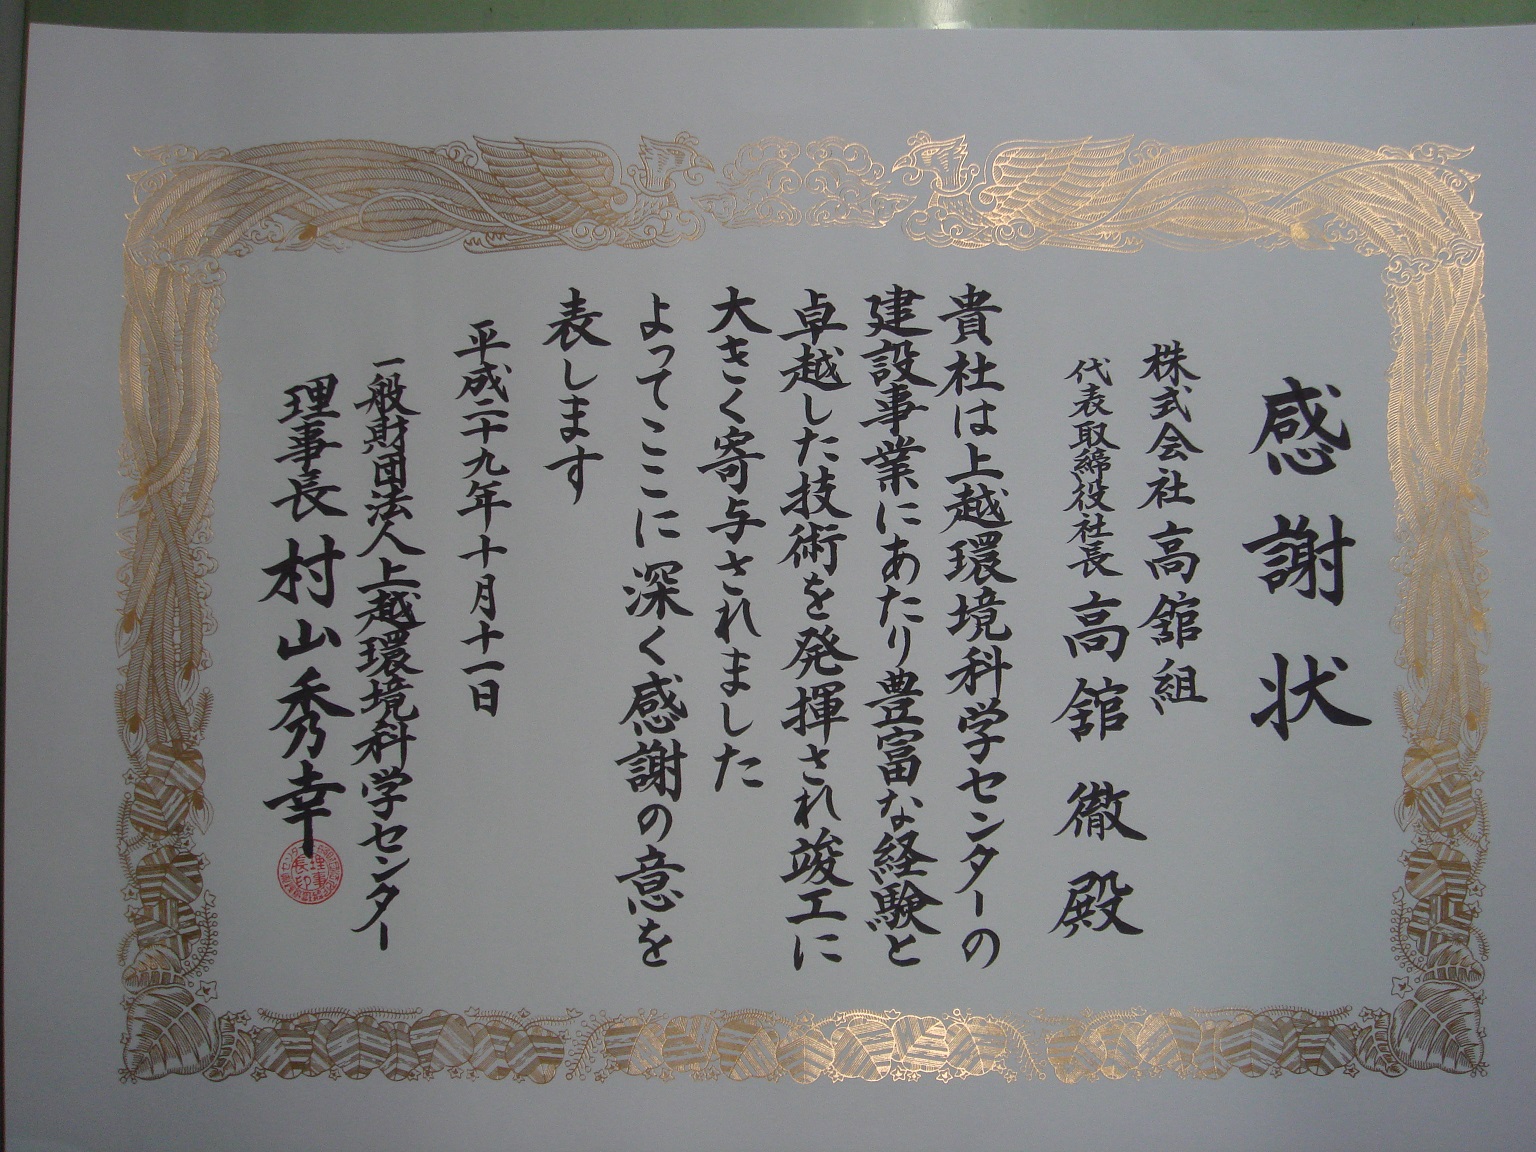 感謝状
株式会社高舘組
代表取締役社長高舘徹殿
貴社は上越環境科学センターの
建設事業にあたり豊富な経験と
卓越した技術を発揮され竣工に
大きく寄与されました
よってここに深く感謝の意を
表します
平成二十九年十月十一日
一般財団法人上越環境科学センター
理事長村山秀幸
理事
長印